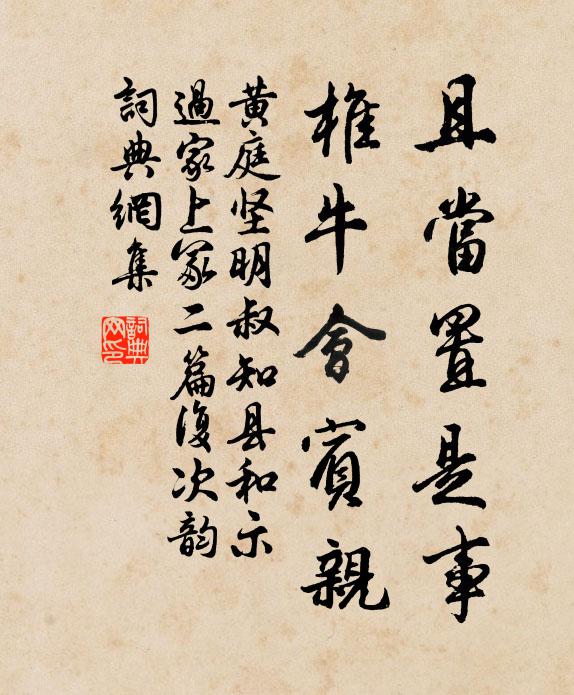 且當置是事
椎牛會賓親
黄庭坚明叔知县和示
過家上冢二篇復次韵
詞典網集
詞典網印